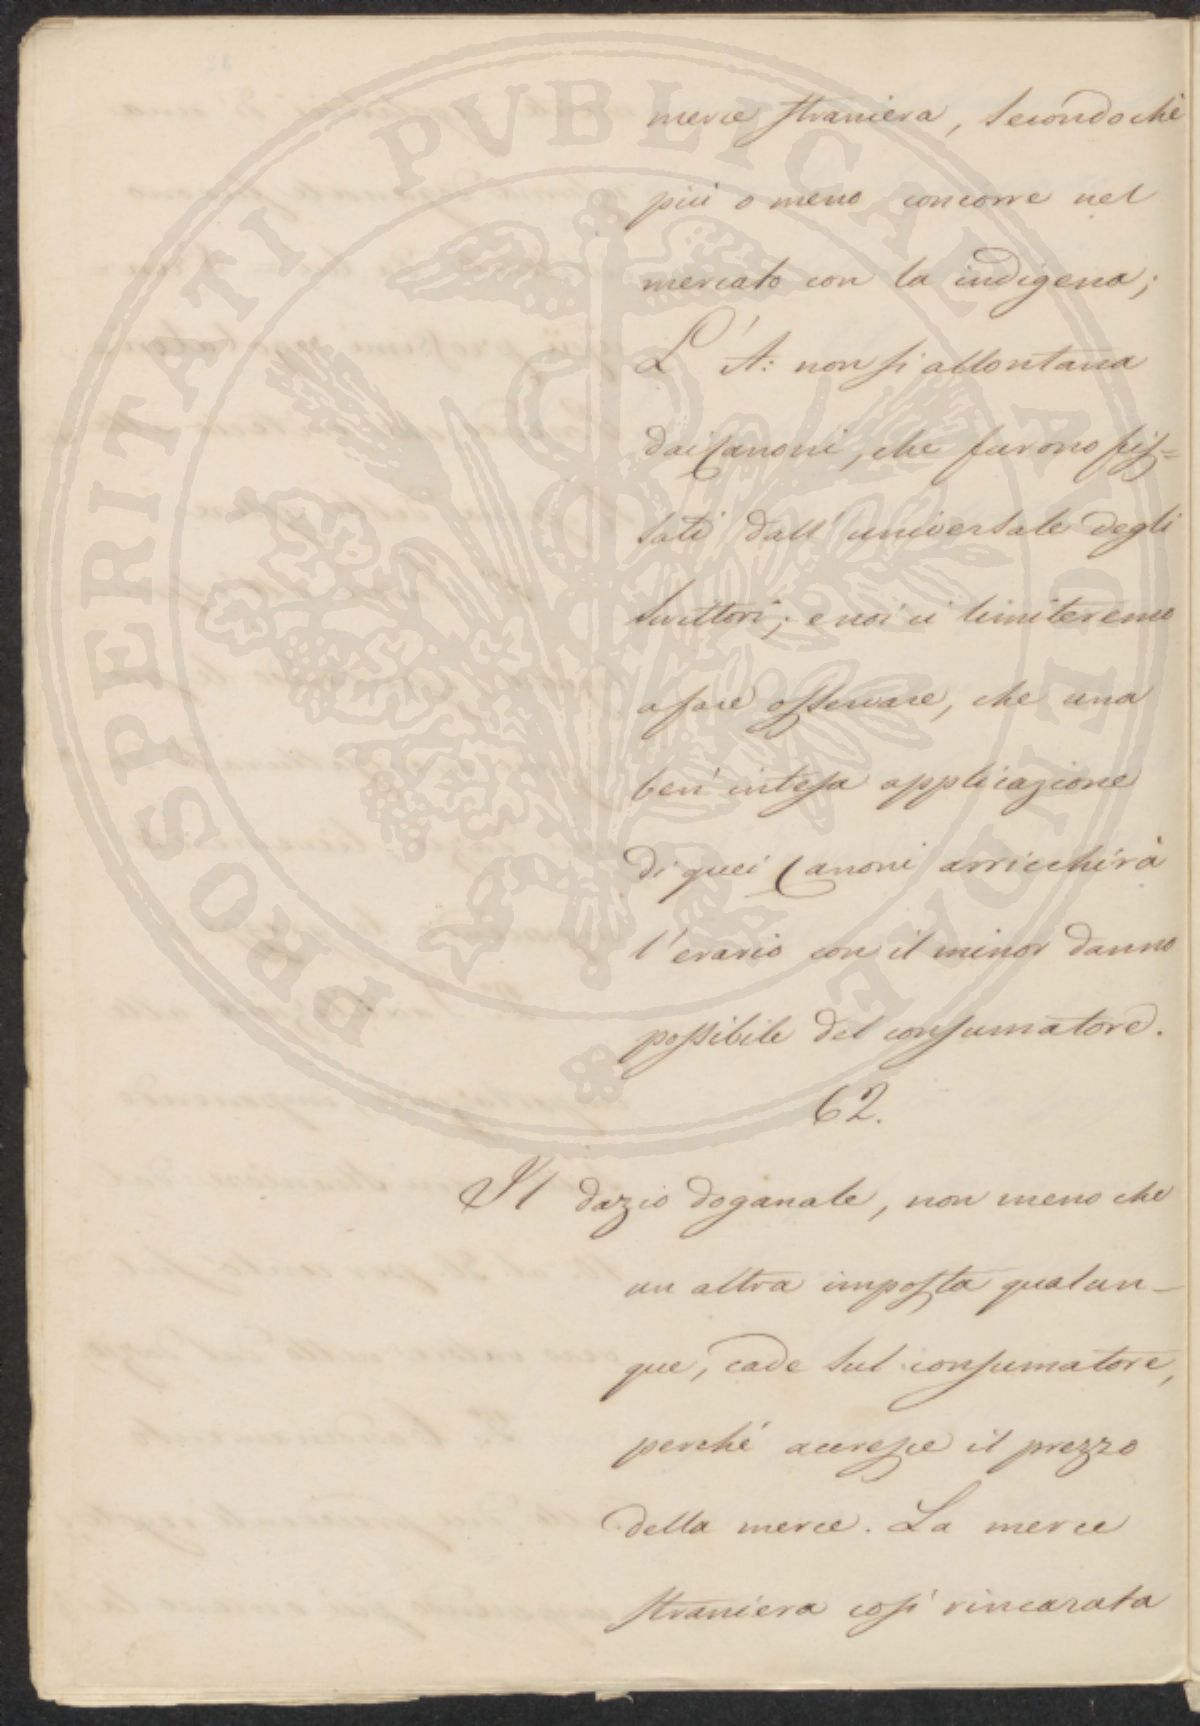 merce straniera, secondochè
più o meno concorre nel
mercato con la indigena;
L'A: non si allontana
dai Canoni, che furono fis=
sati dall'universale degli
scrittori; e noi ci limiteremo
a fare osservare, che una
ben'intesa applicazione
di quei Canoni arricchirà
l'erario con il minor danno
possibile del consumatore.
62.
Il dazio doganale, non meno che
un altra imposta qualun-
que, cade sul consumatore,
perché accresce il prezzo
della merce. La merce
straniera così rincarata
PROSPERITATI PVBLICAE AVGENDAE